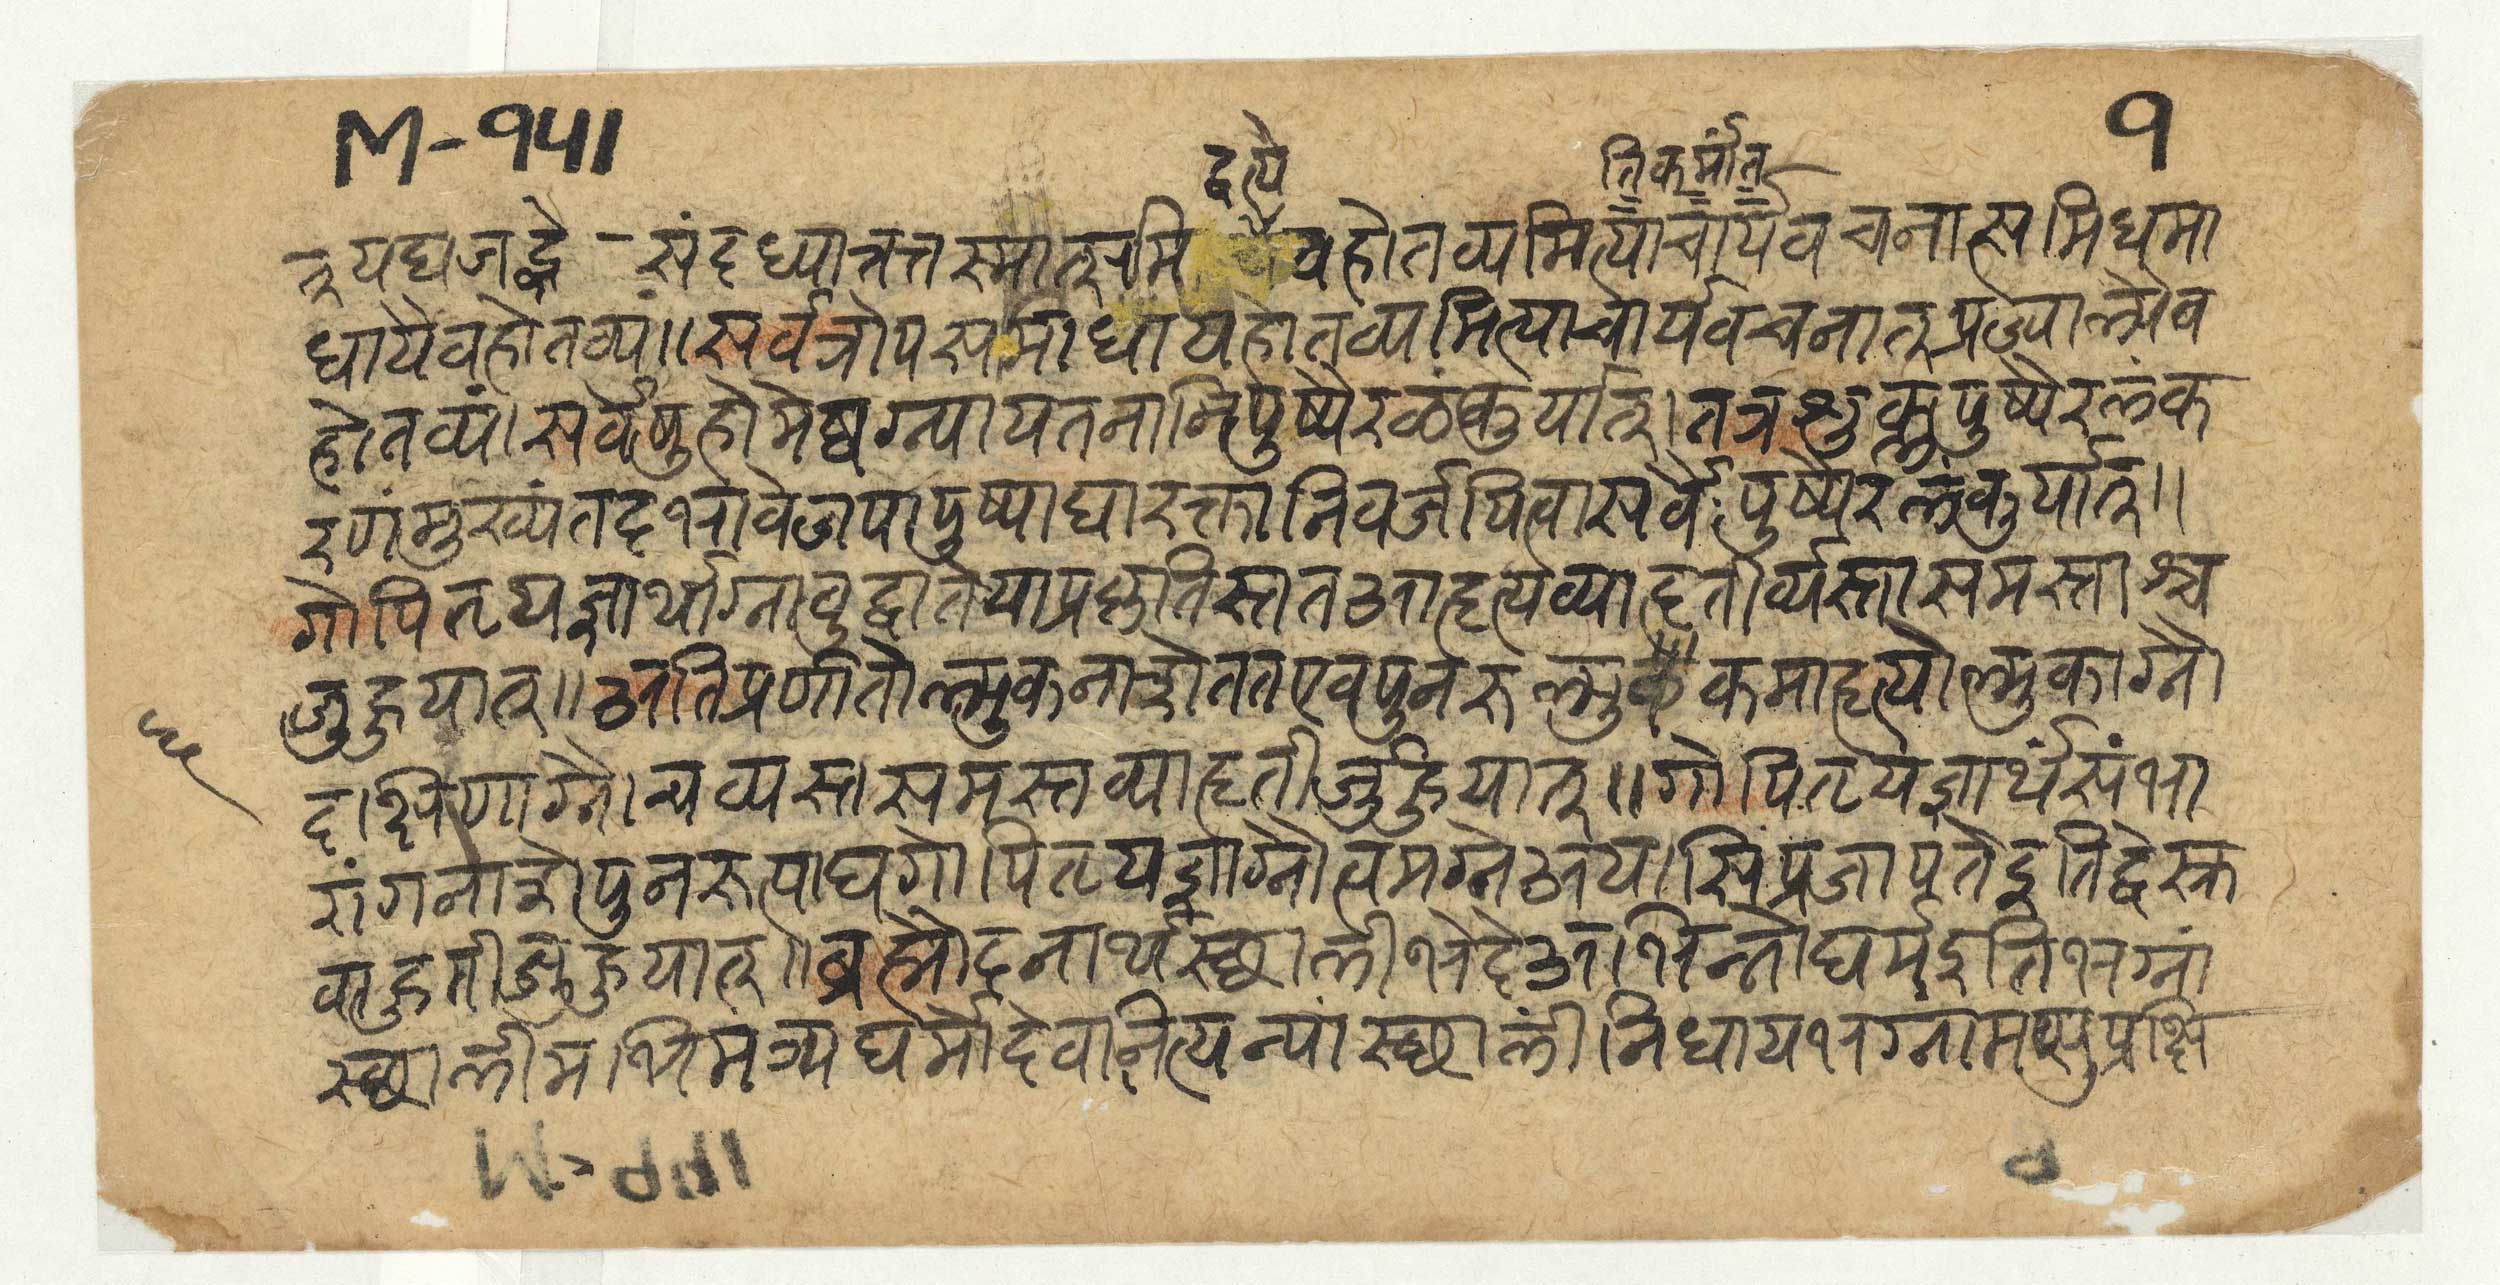 M-941
१
द्वत्ये
तिकर्मांत
त्रयद्यजद्धे - संदध्यान्नत्तस्मात्समि वहोतव्यमित्याचार्यवचनात्समिधमा
धायेवहोतव्यं॥सर्वत्रोपसमाधायहोतव्यमित्याचार्यवचनात्प्रज्वाल्येव
होतव्यं।सर्वेषुहोमेष्वग्न्यायतनानिपुष्पैरळंकुर्यात्।तत्रशुक्लपुष्पैरलंक
रणंमुख्यंतदभावेजपापुष्पाद्यारक्तानिवर्जयित्वासर्वैःपुष्पैरलंकुर्यात्॥
गोपितृयज्ञार्थाग्नावुद्वातेयाप्रकृतिस्ततआहृत्यव्याहृतीर्व्यस्तासमस्ताश्च
जुहुयात्॥अतिप्रणीतोल्मुकनाशेततएवपुनरुल्मुकैकमाहृत्योल्मुकाग्नौ
दक्षिणाग्नौचव्यस्तसमस्तव्याहृतीर्जुहुयात्॥गोपितृयज्ञार्थसंभा
रांगनाशेपुनरुत्पाद्यगोपितृयज्ञाग्नौत्वमग्नेअयासिप्रजापतेइतिद्वेस्क
वाहुतीजुहुयात्॥ब्रह्मौदनार्थस्छालीभेदेअभिन्नोघर्मइतिभग्नां
स्छालीमभिमंत्र्यघर्मोदेवानित्यन्यांस्छालींनिधायभग्नामप्सुप्रक्षि